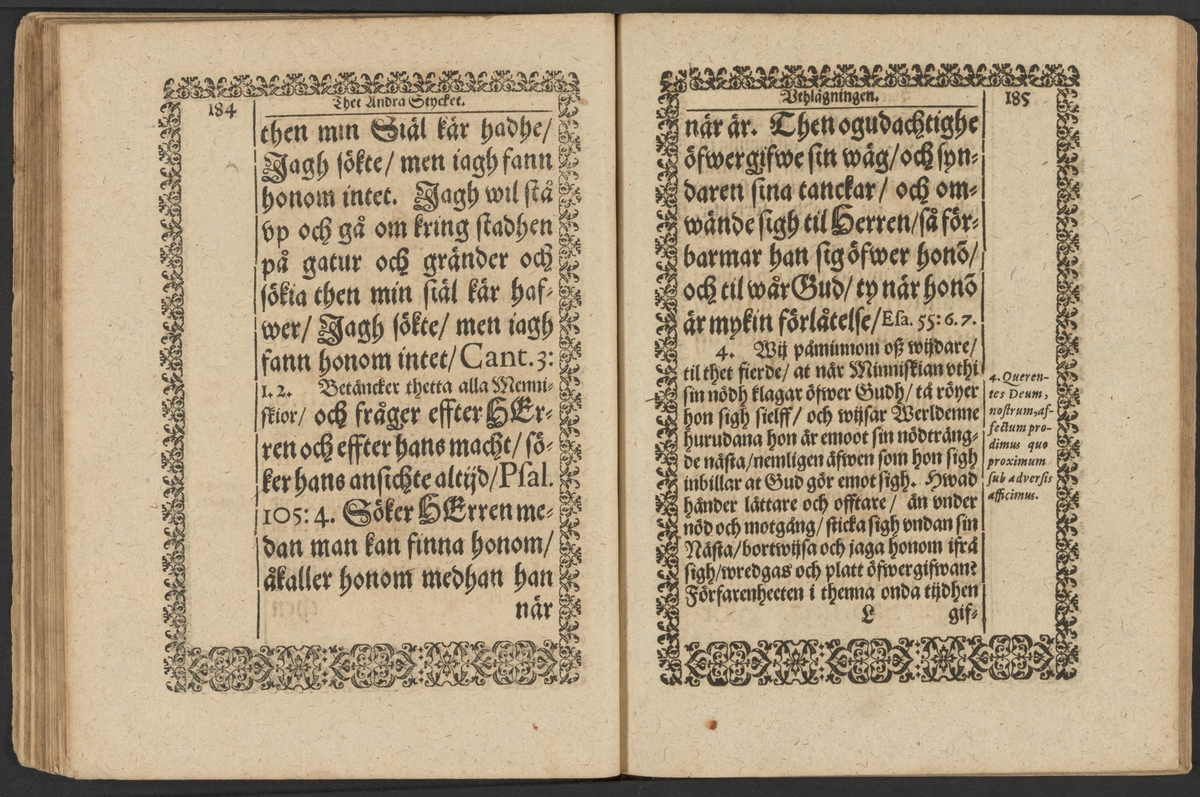 184
Thet Andra Stycket.
then min Siäl kär hadhe/
Jagh sökte/ men iagh fann
honom intet. Jagh wil stå
vp och gå om kring stadhen
på gatur och gränder och
sökia then min siäl kär haf-
wer/ Jagh sökte/ men iagh
fann honom intet/ Cant. 3:
1. 2. Betäncker thetta alla Menni-
skior/ och fråger effter HEr-
ren och effter hans macht/ sö-
ker hans ansichte altijd/ Psal.
105: 4. Söker HErren me-
dan man kan finna honom/
åkaller honom medhan han
när
Vthläggningen.
185
när är. Then ogudachtighe
öfwergifwe sin wäg/ och syn-
daren sina tanckar/ och om-
wände sigh til Herren/ så för-
barmar han sig öfwer honõ/
och til wår Gud/ ty när honõ
är mykin förlåtelse/ Esa. 55: 6. 7.
4. Wij påminnom oß wijdare/
til thet fierde/ at när Minniskian vthi
sin nödh klagar öfwer Gudh/ tå röyer
hon sigh sielff/ och wijsar Werldenne
hurudana hon är emoot sin nödträng-
de nästa/ nemligen äfwen som hon sigh
inbillar at Gud gör emot sigh. Hwad
händer lättare och offtare/ än vnder
nöd och motgång/ sticka sigh vndan sin
Nästa/ bortwijsa och jaga honom ifrå
sigh/ wredgas och platt öfwergifwan?
Förfarenheeten i thenna onda tijdhen
L gif-
4. Queren-
tes Deum,
nostrum, af-
fectum pro-
dimus quo
proximum
sub adversis
afficimus.